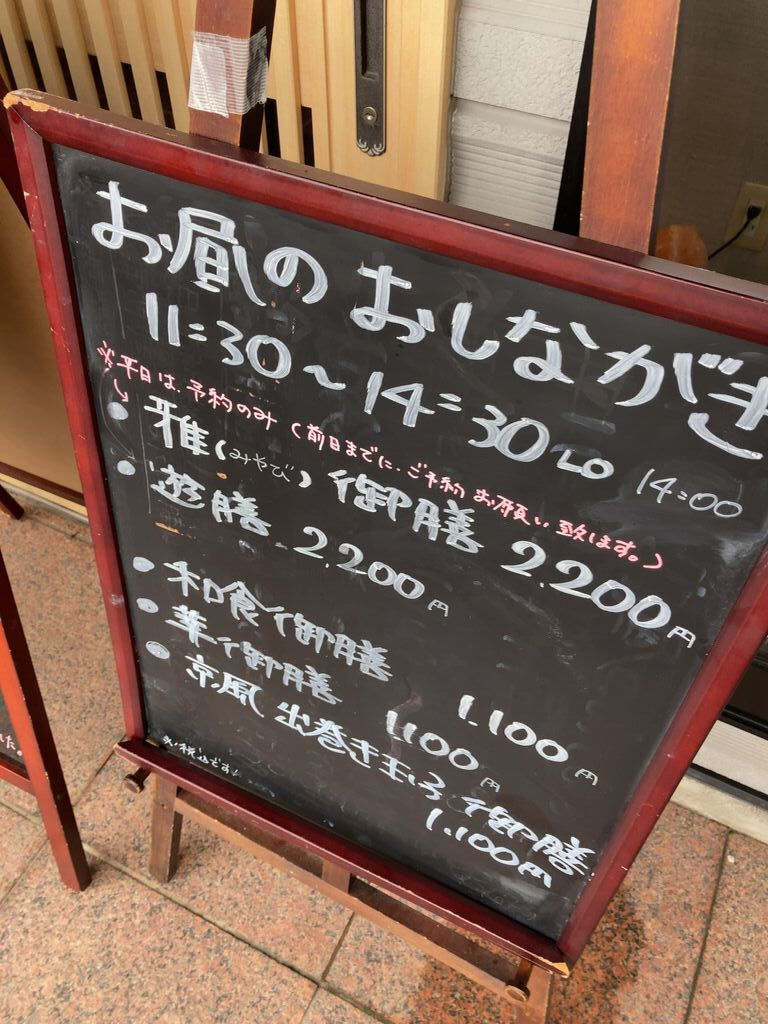 お昼のおしながき
11:30〜14:30 LO 14:00
※平日は、予約のみ(前日までに、ご予約お願い致します。)
・雅(みやび)御膳 2,200円
・遊膳 2,200円
・和食御膳 1,100円
・華御膳 1,100円
・京風出巻き玉子御膳
1,100円
※税込です。
た。